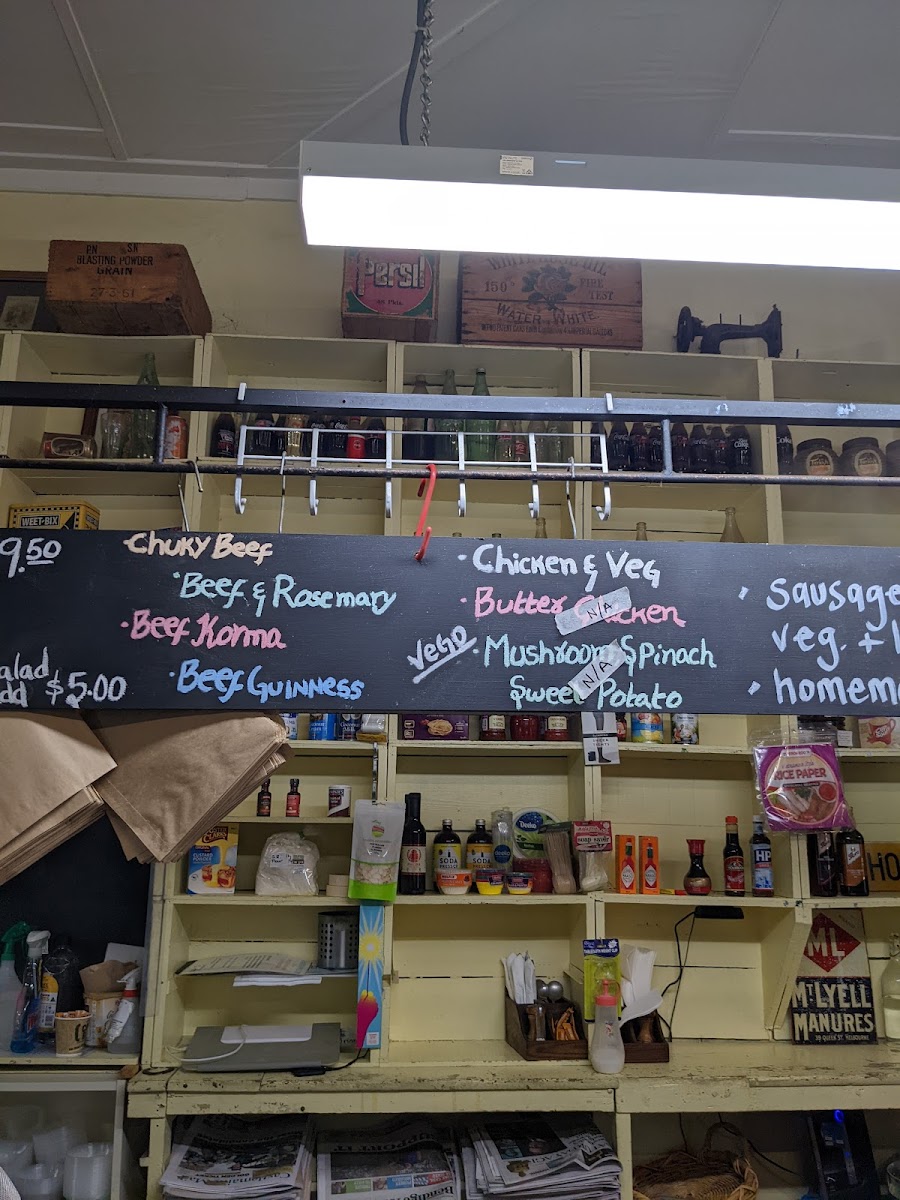 PN SN
BLASTING POWDER
GRAIN
27·3·61
Persil
150° FIRE
TEST
WATER WHITE
WEET-BIX
9.50
Chuky Beef
· Beef & Rosemary
· Beef Korma
· Beef Guinness
alad
dd $5.00
· Chicken & Veg
· Butter
N/A
VEGO
· Mushroom Spinach
N/A
Sweet Potato
· Sausage
veg. +
· homem
RICE PAPER
CUSTARD
POWDER
SODA
SODA
HP
HO
ML
MT LYELL
MANURES
39 QUEEN ST. MELBOURNE
Bendigo